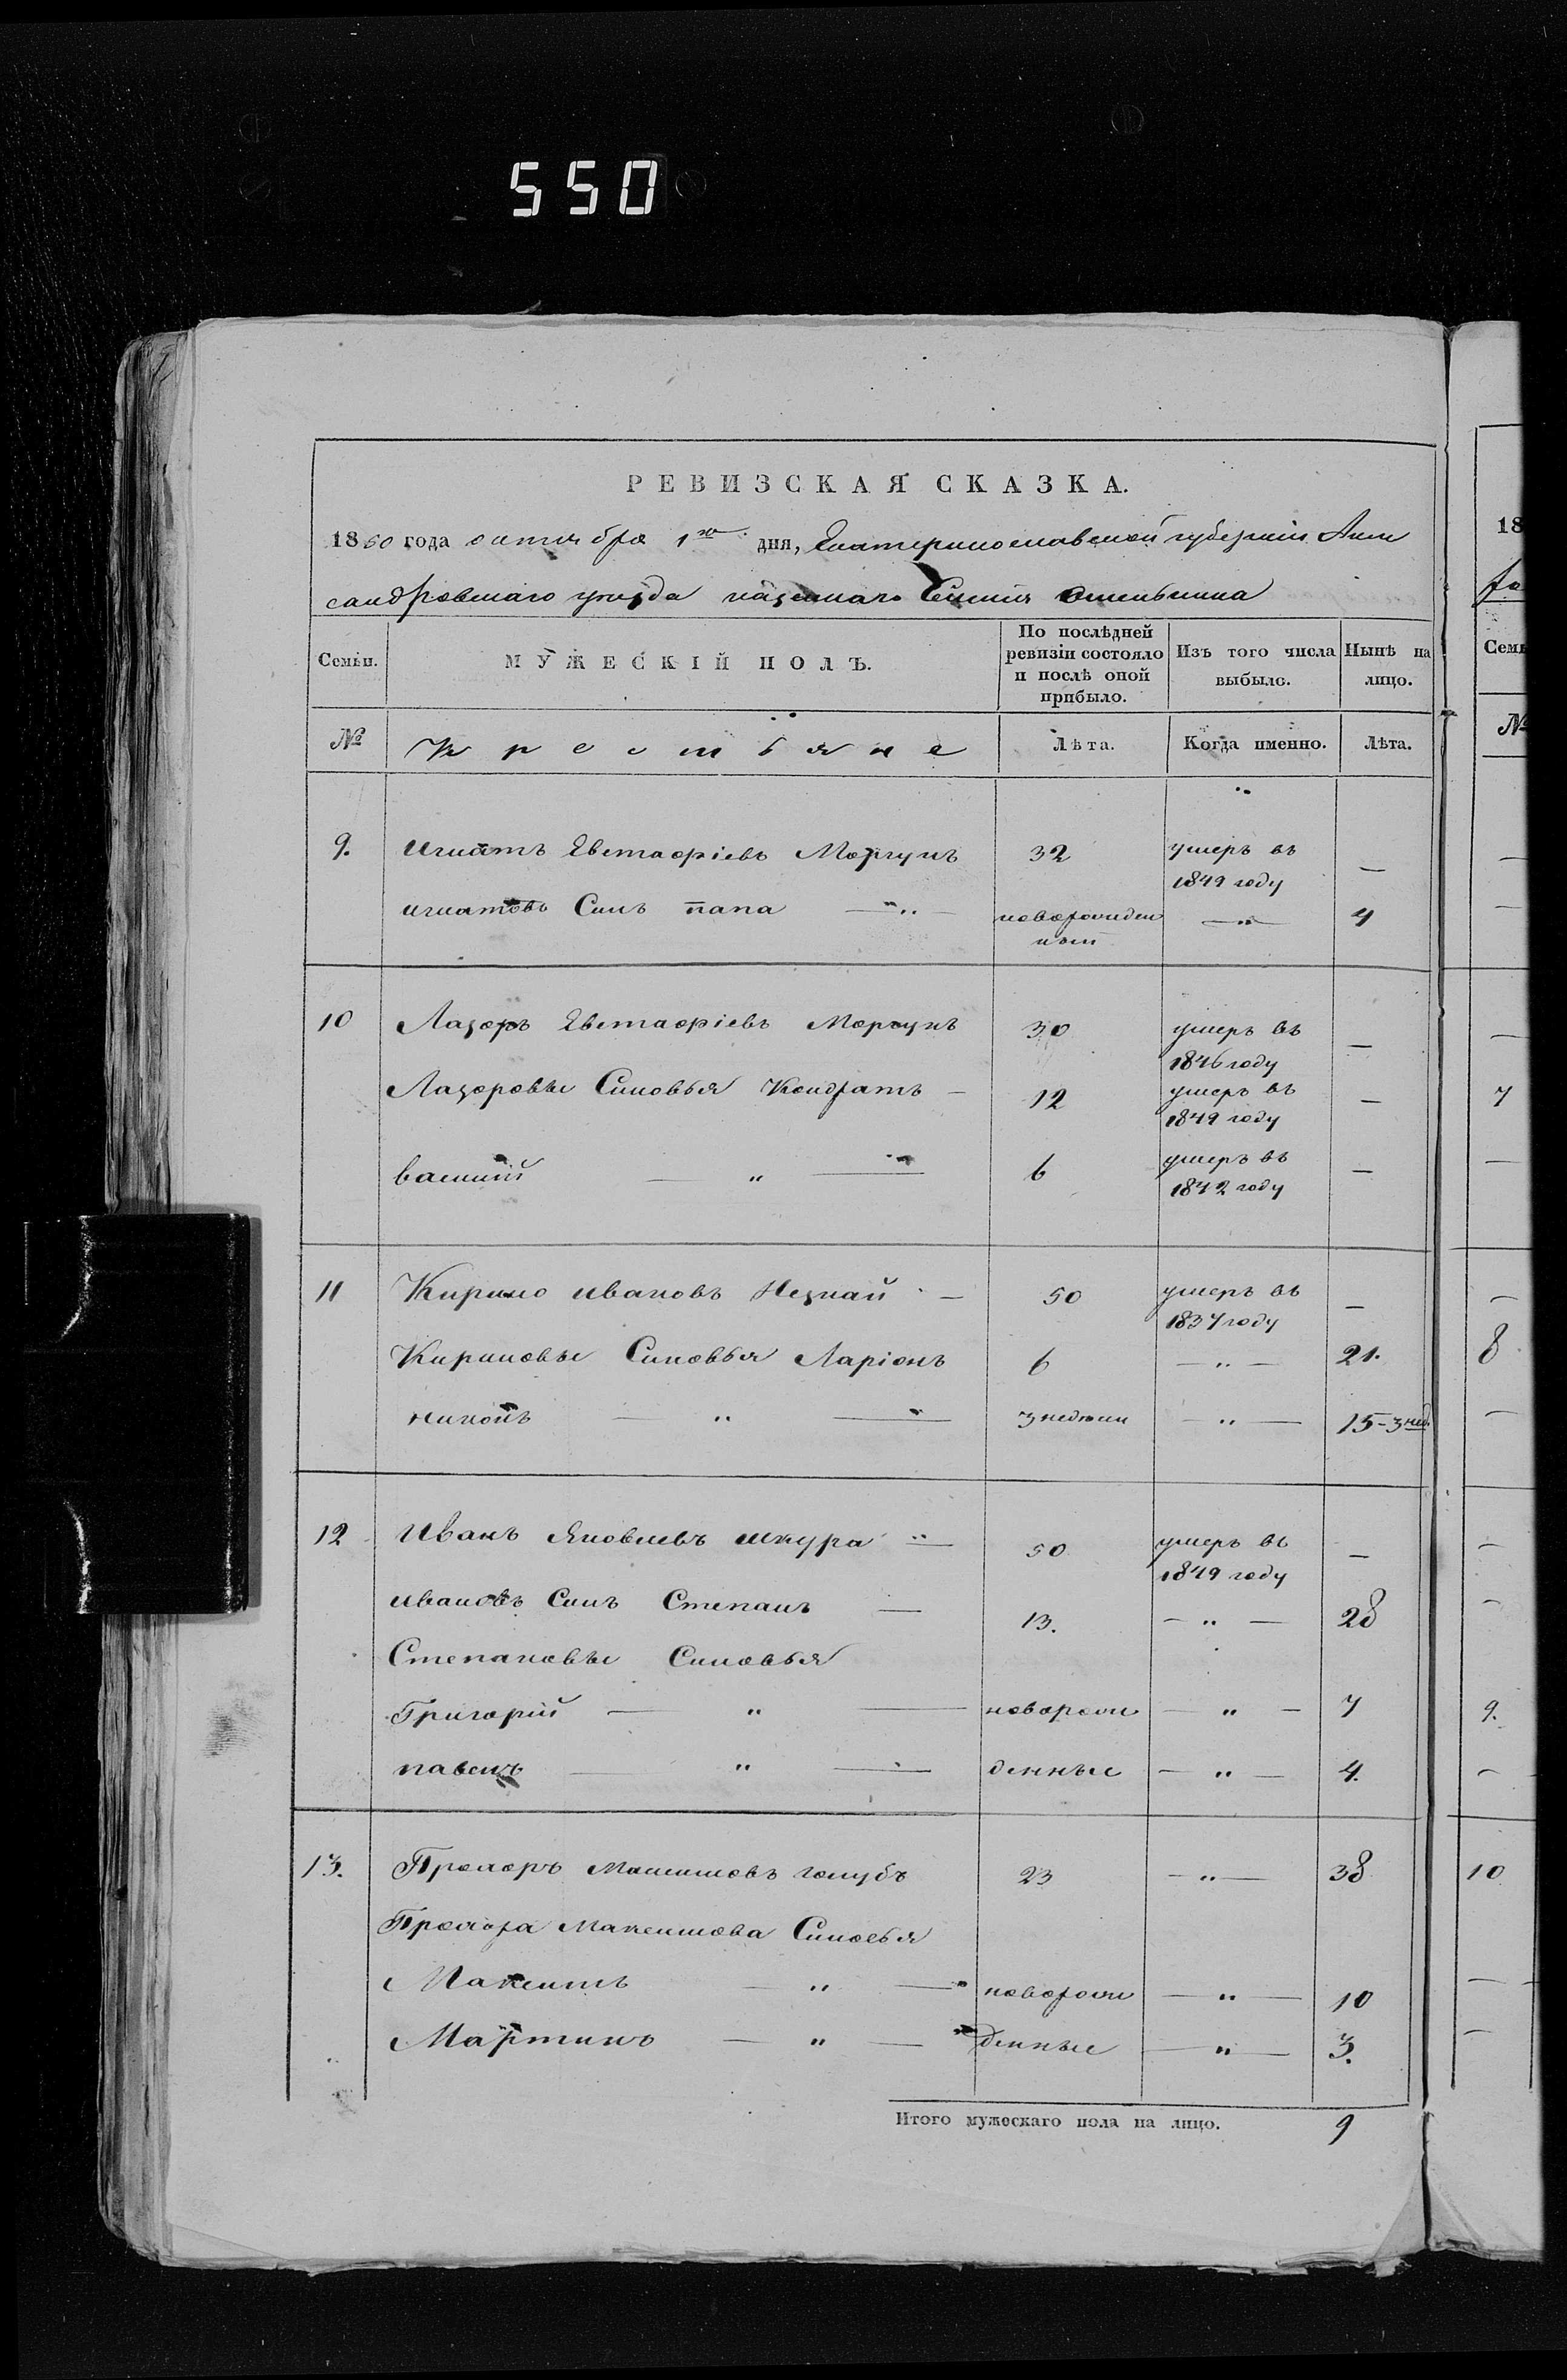 550
РЕВИЗСКАЯ СКАЗКА.
1850 года октября 1го дня, Екатеринославской губернии Алек
сандровскаго уезда казеннаго Селения
Семьи. МУЖЕСКІЙ ПОЛЪ. По послѣдней ревизіи состояло и послѣ оной прибыло. Изъ того числа выбыло. Нынѣ на лицо.
№ Крестьяне Лѣта. Когда именно. Лѣта.
9. Игнатъ Евстафіевъ Моргунъ 32 умеръ въ 1849 году —
игнатовъ Синъ папа — " — новорожден ной — " — 4
10 Лазоръ Евстафіевъ Моргунъ 30 умеръ въ 1846 году —
Лазоровы Синовья Кондратъ — 12 умеръ въ 1849 году —
василий — " — 6 умеръ въ 1842 году —
11 Кирило ивановъ Незнай — 50 умеръ въ 1837 году —
Кириловы Синовья Ларіонъ 6 — " — 21.
никонъ — " — 3 недели — " — 15-3 нед.
12 Иванъ Яковлевъ шкура " — 50 умеръ въ 1849 году —
ивановъ Синъ Степанъ — 13. — " — 28
Степановы Синовья
Григорій — " — новорож — " — 7
павелъ — " — денные — " — 4.
13. Прохоръ Максимовъ голубъ 23 — " — 38
Прохора Максимова Синовья
Максимъ — " — новорож — " — 10
Мартинъ — " — денные — " — 3.
Итого мужескаго пола на лицо. 9
18
Семь
№
—
—
—
7
—
—
8
—
—
—
9.
—
10
—
—